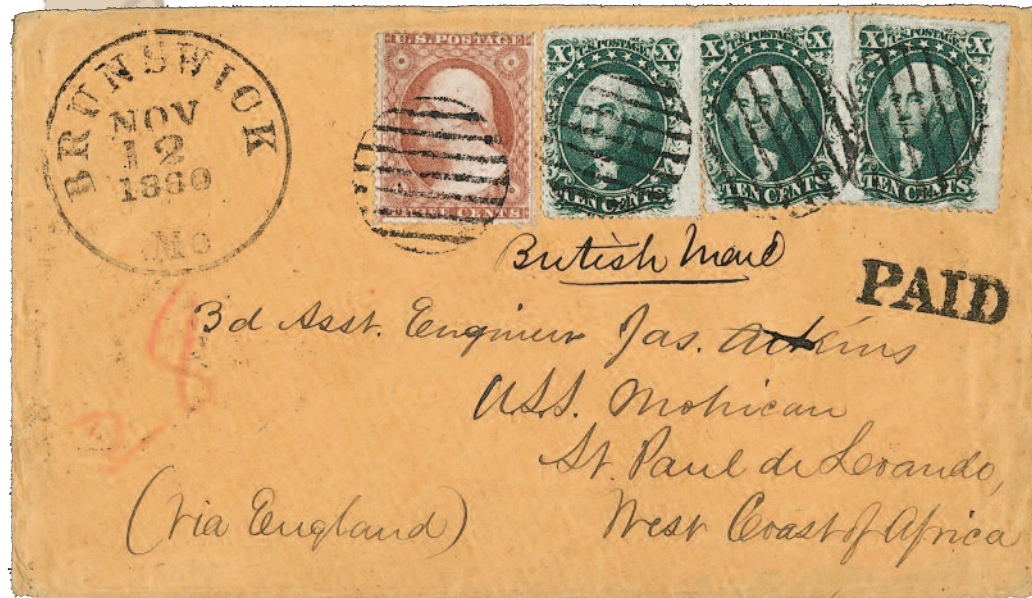 BRUNSWICK
NOV
12
1860
Mc
U.S. POSTAGE
THREE CENTS
X U.S. POSTAGE X
TEN CENTS
X U.S. POSTAGE X
TEN CENTS
X U.S. POSTAGE X
TEN CENTS
British Mail
PAID
3d Asst. Engineer Jas. Atkins
U.S.S. Mohican
St. Paul de Loando,
(Via England)
West Coast of Africa